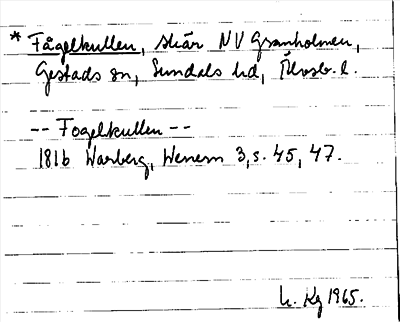 * Fågelkullen, skär NV Granholmen,
Gestads sn, Sundals hd, Älvsb. l.
-- Fogelkullen --
1816 Warberg, Wenern 3, s. 45, 47.
L. Kg 1965.